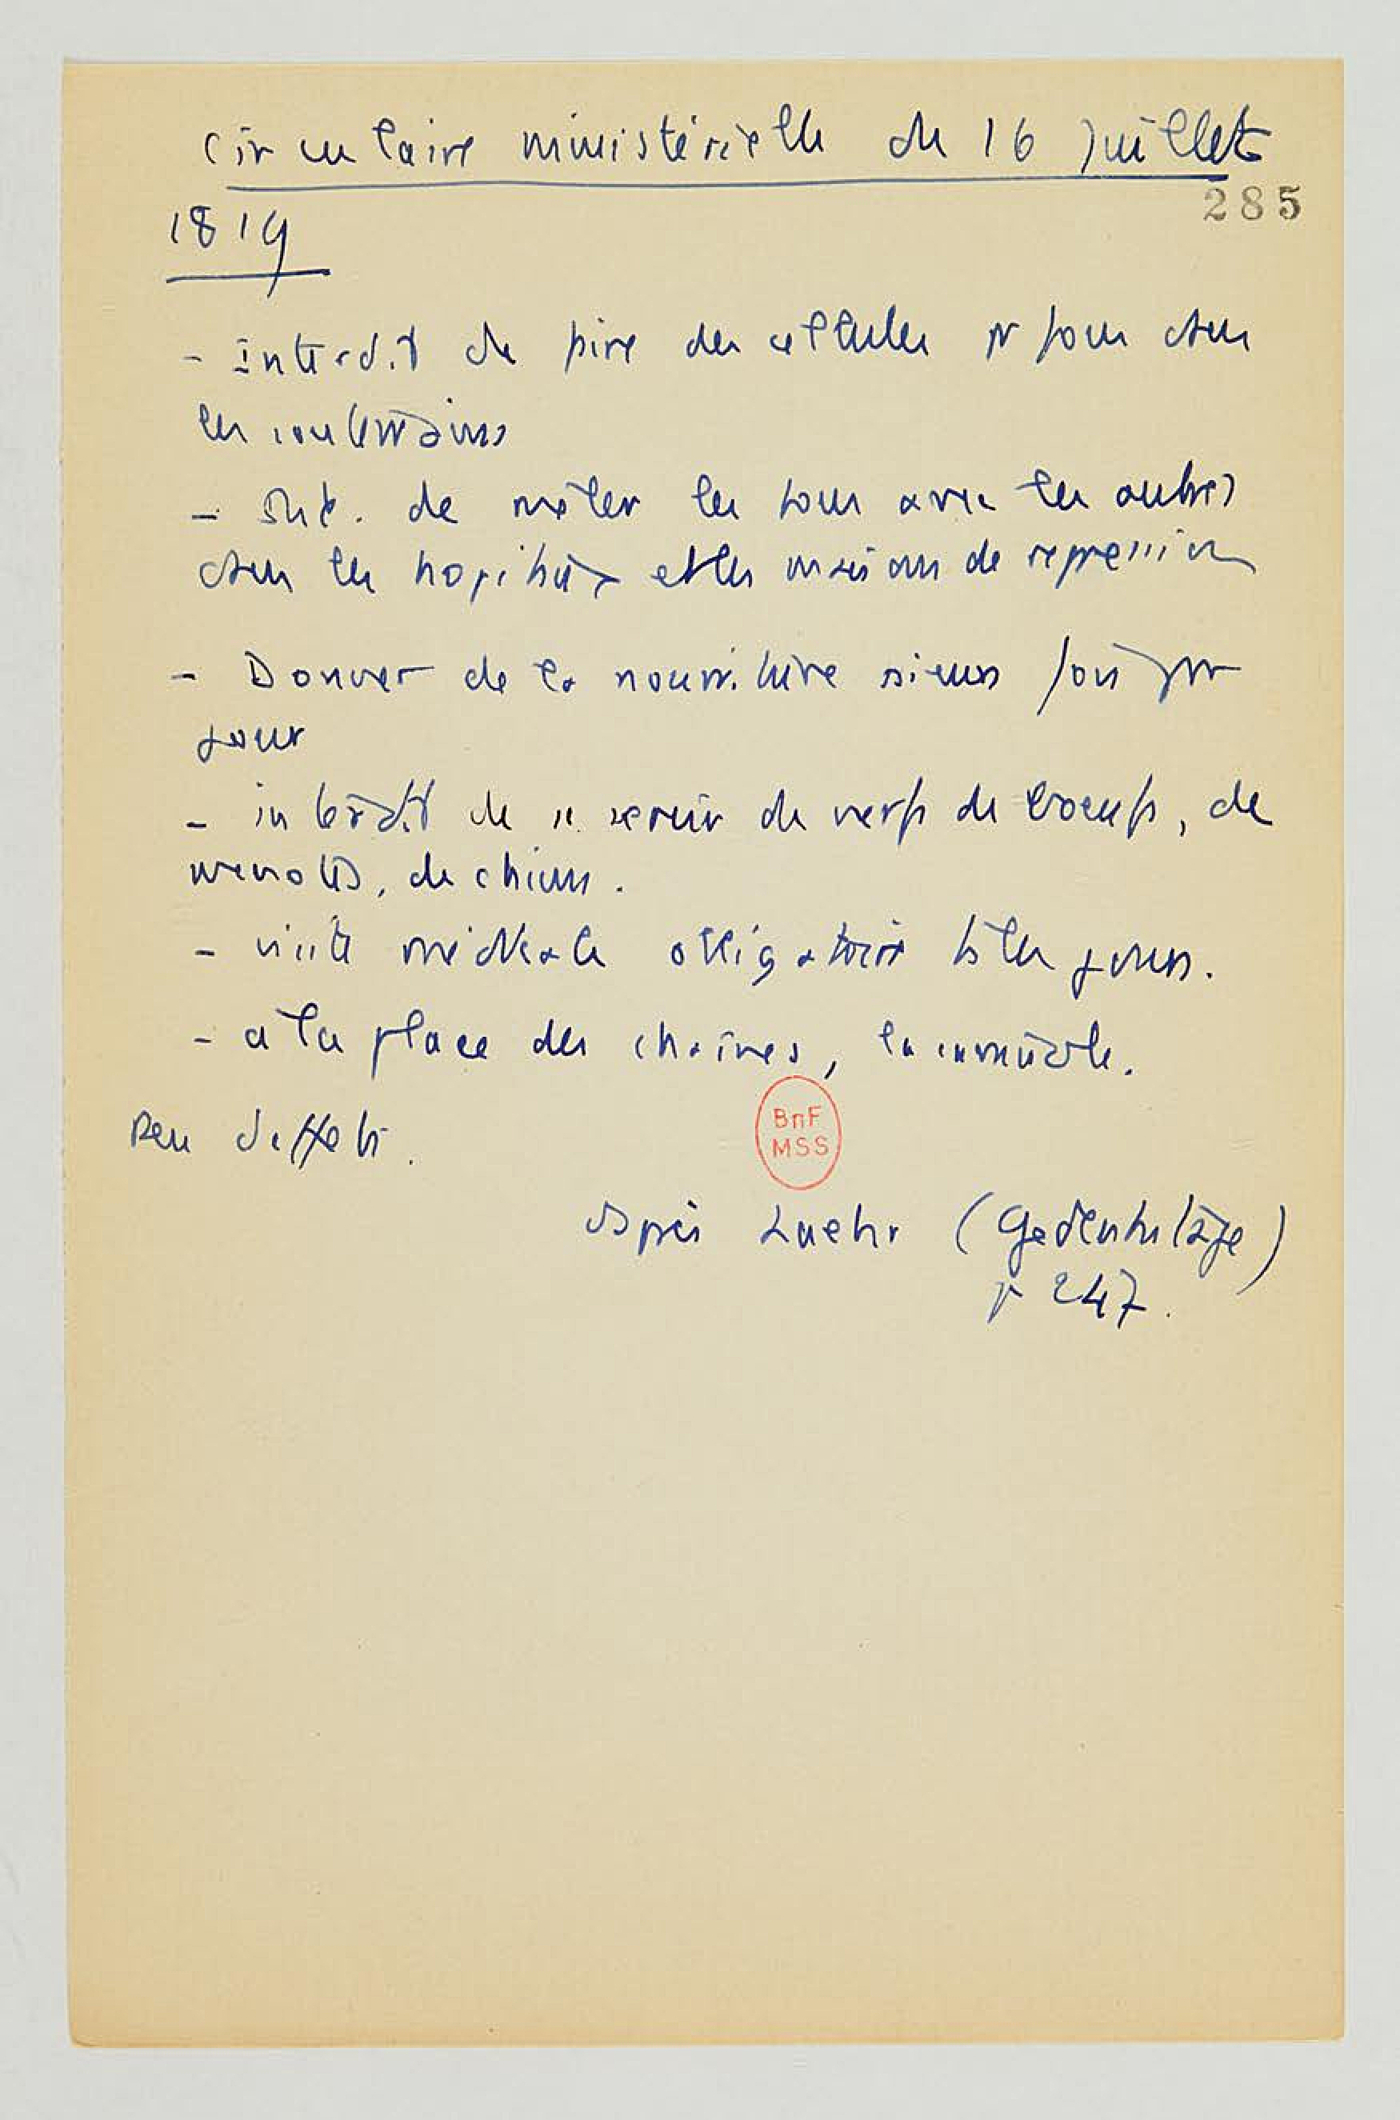 Circulaire ministérielle du 16 Juillet
285
1819
- Interdit de faire des cellules pr fous dans
les souterrains
- Int. de mêler les fous avec les autres
dans les hopitaux et les maisons de repression
- Donner de la nourriture plusieurs fois par
jour
- interdit de se servir de nerfs de boeufs, de
menottes, de chiens.
- visite médicale obligatoire ts les jours.
- a la place des chaines, la camisole.
Peu d'effets.
d'après Laehr (Gedenktage)
p 247.
BnF
MSS